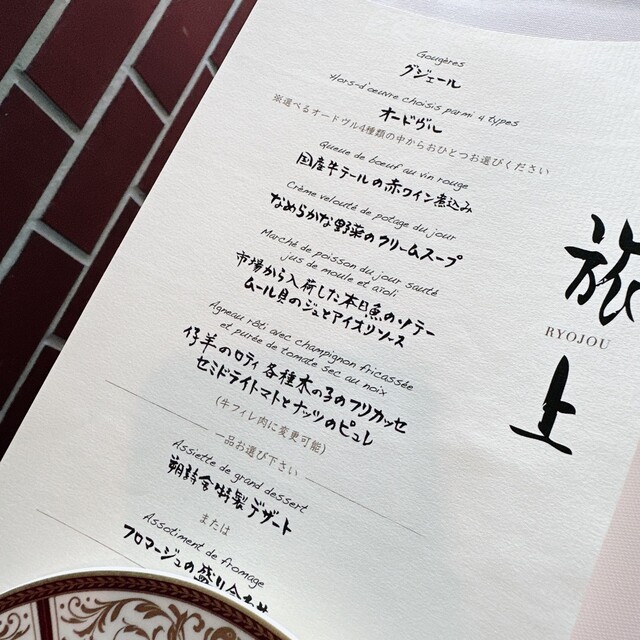 Gougères
グジェール
Hors-d'oeuvre choisis parmi 4 types
オードヴル
※選べるオードヴル4種類の中からおひとつお選びください
Queue de boeuf au vin rouge
国産牛テールの赤ワイン煮込み
Crème velouté de potage du jour
なめらかな野菜のクリームスープ
Marché de poisson du jour sauté
jus de moule et aïoli
市場から入荷した本日魚のソテー
ムール貝のジュとアイオリソース
Agneau rôti avec champignon fricassée
et purée de tomate sec au noix
仔羊のロティ 各種木の子のフリカッセ
セミドライトマトとナッツのピュレ
(牛フィレ肉に変更可能)
一品お選び下さい
Assiette de grand dessert
朔詩舎特製デザート
または
Assotiment de fromage
フロマージュの盛り合わせ
旅上
RYOJOU